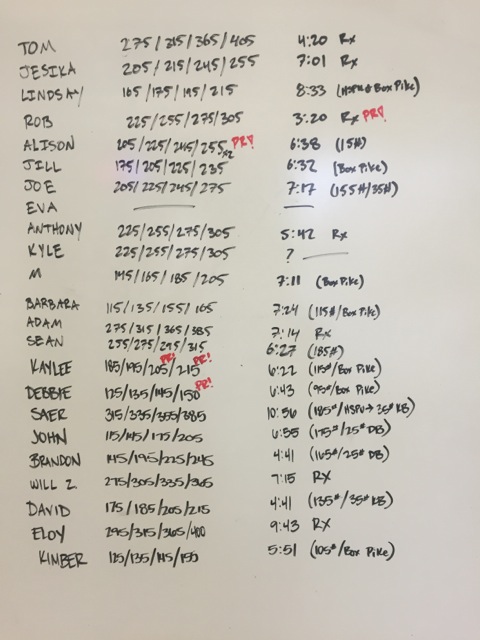 TOM 275/315/365/405 4:20 Rx
JESIKA 205/215/245/255 7:01 Rx
LINDSAY 165/175/195/215 8:33 (HSPU & Box Pike)
ROB 225/255/275/305 3:20 Rx PR!
ALISON 205/225/245/255x2 PR! 6:38 (15#)
JILL 175/205/225/235 6:32 (Box Pike)
JOE 205/225/245/275 7:17 (155#/35#)
EVA
ANTHONY 225/255/275/305 5:42 Rx
KYLE 225/255/275/305 ?
M 145/165/185/205 7:11 (Box Pike)
BARBARA 115/135/155/165 7:24 (115#/Box Pike)
ADAM 275/315/365/385 7:14 Rx
SEAN 255/275/295/315 6:27 (185#)
KAYLEE 185/195/205/215 PR! PR! 6:22 (115#/Box Pike)
DEBBIE 125/135/145/150 PR! 6:43 (95#/Box Pike)
SAER 315/335/355/385 10:56 (185#/HSPU→35# KB)
JOHN 115/145/175/205 6:55 (175#/25# DB)
BRANDON 145/195/225/245 4:41 (165#/25# DB)
WILL Z. 275/305/335/365 7:15 RX
DAVID 175/185/205/215 4:41 (135#/35# KB)
ELOY 295/315/365/400 9:43 RX
KIMBER 125/135/145/155 5:51 (105#/Box Pike)